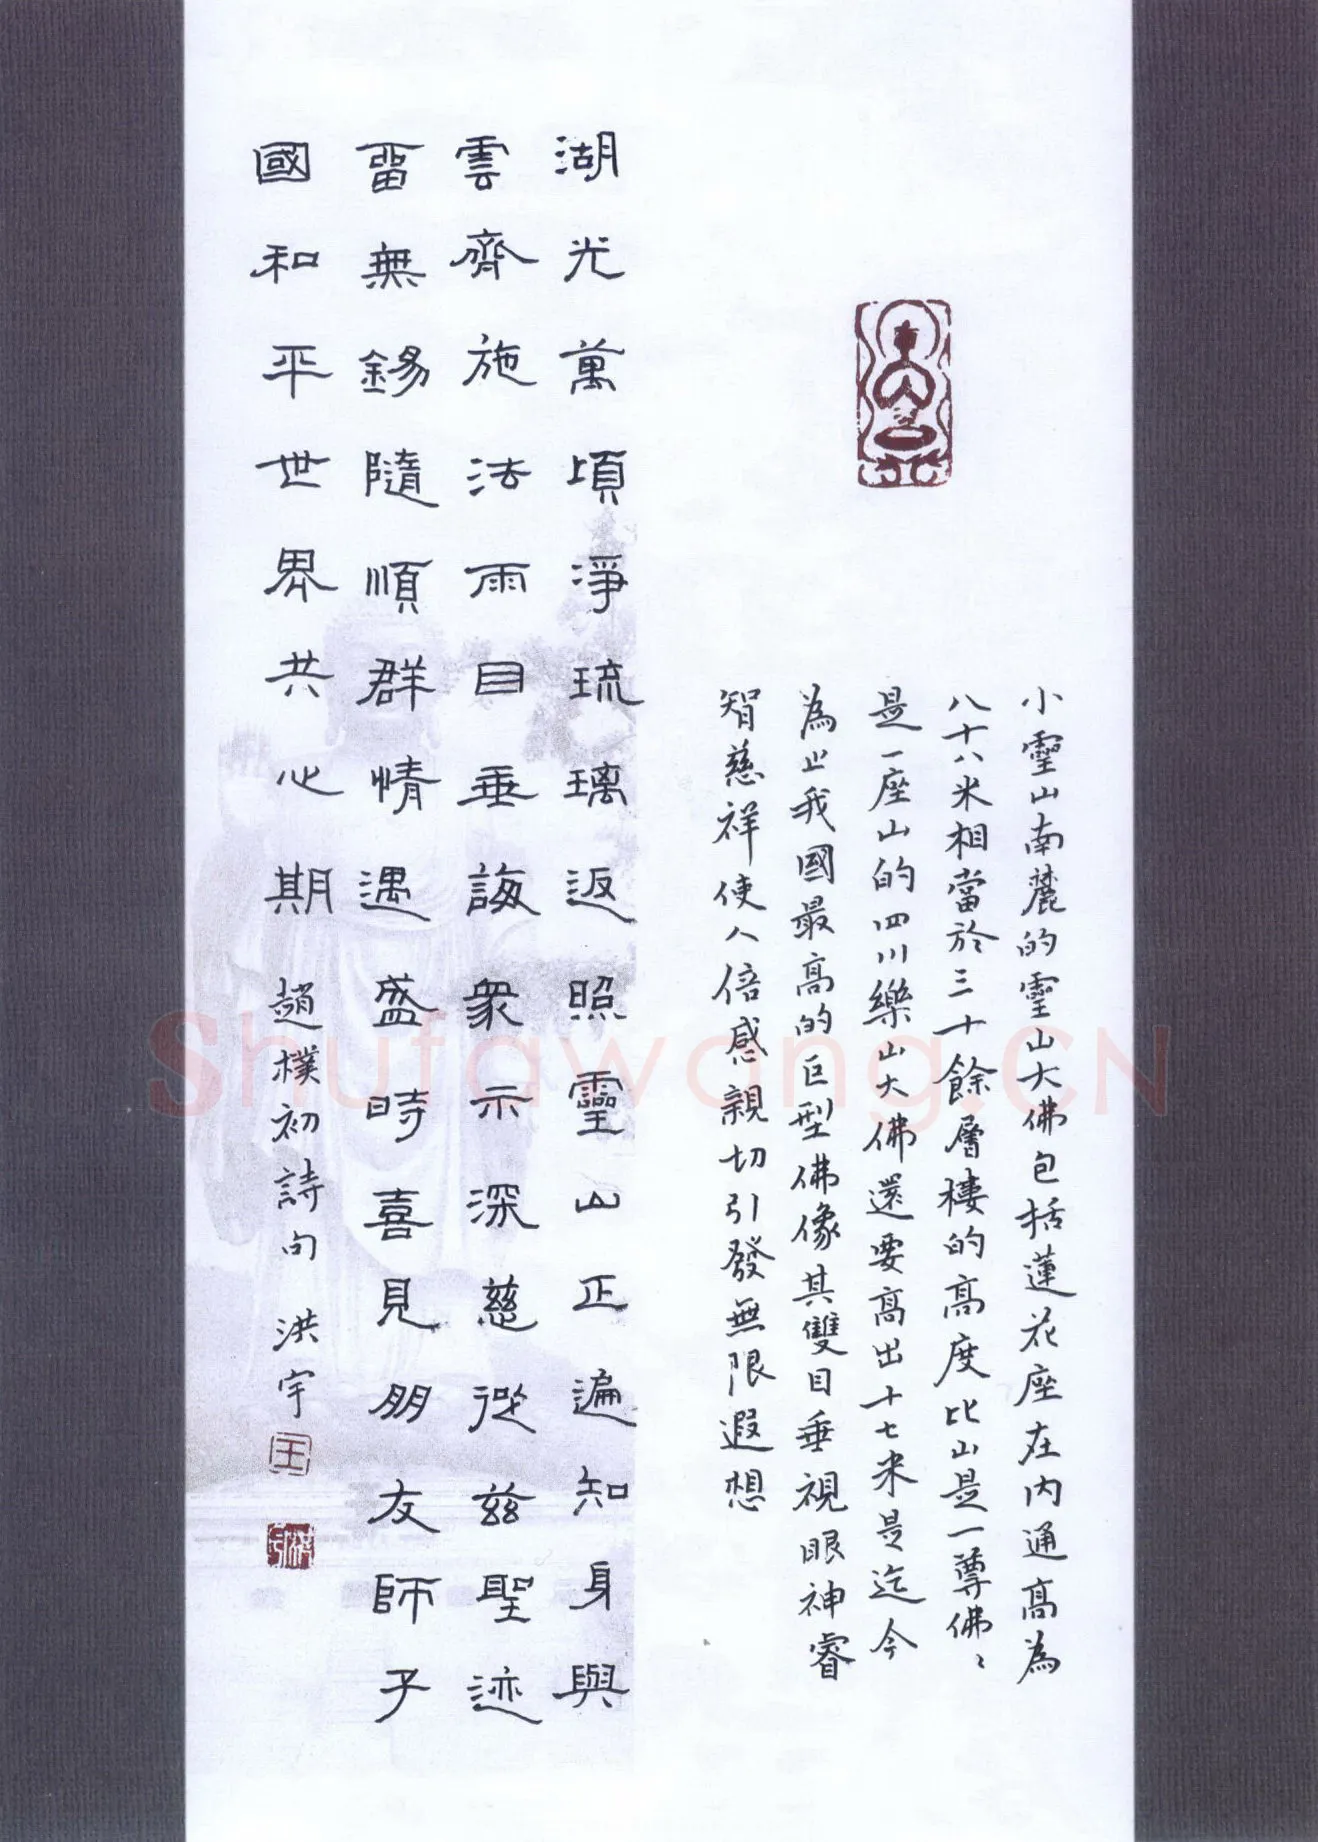 小靈山南麓的靈山大佛包括蓮花座在内通高為
八十八米相當於三十餘層樓的高度比山是一尊佛〻
是一座山的四川樂山大佛還要高出十七米是迄今
為止我國最高的巨型佛像其雙目垂視眼神睿
智慈祥使人倍感親切引發無限遐想
湖光萬頃淨琉璃返照靈山正遍知身與
雲齊施法雨目垂誨衆示深慈從兹聖迹
留無錫隨順群情遇盛時喜見朋友師子
國和平世界共心期 趙樸初詩句 洪宇
王
Shufawang.CN